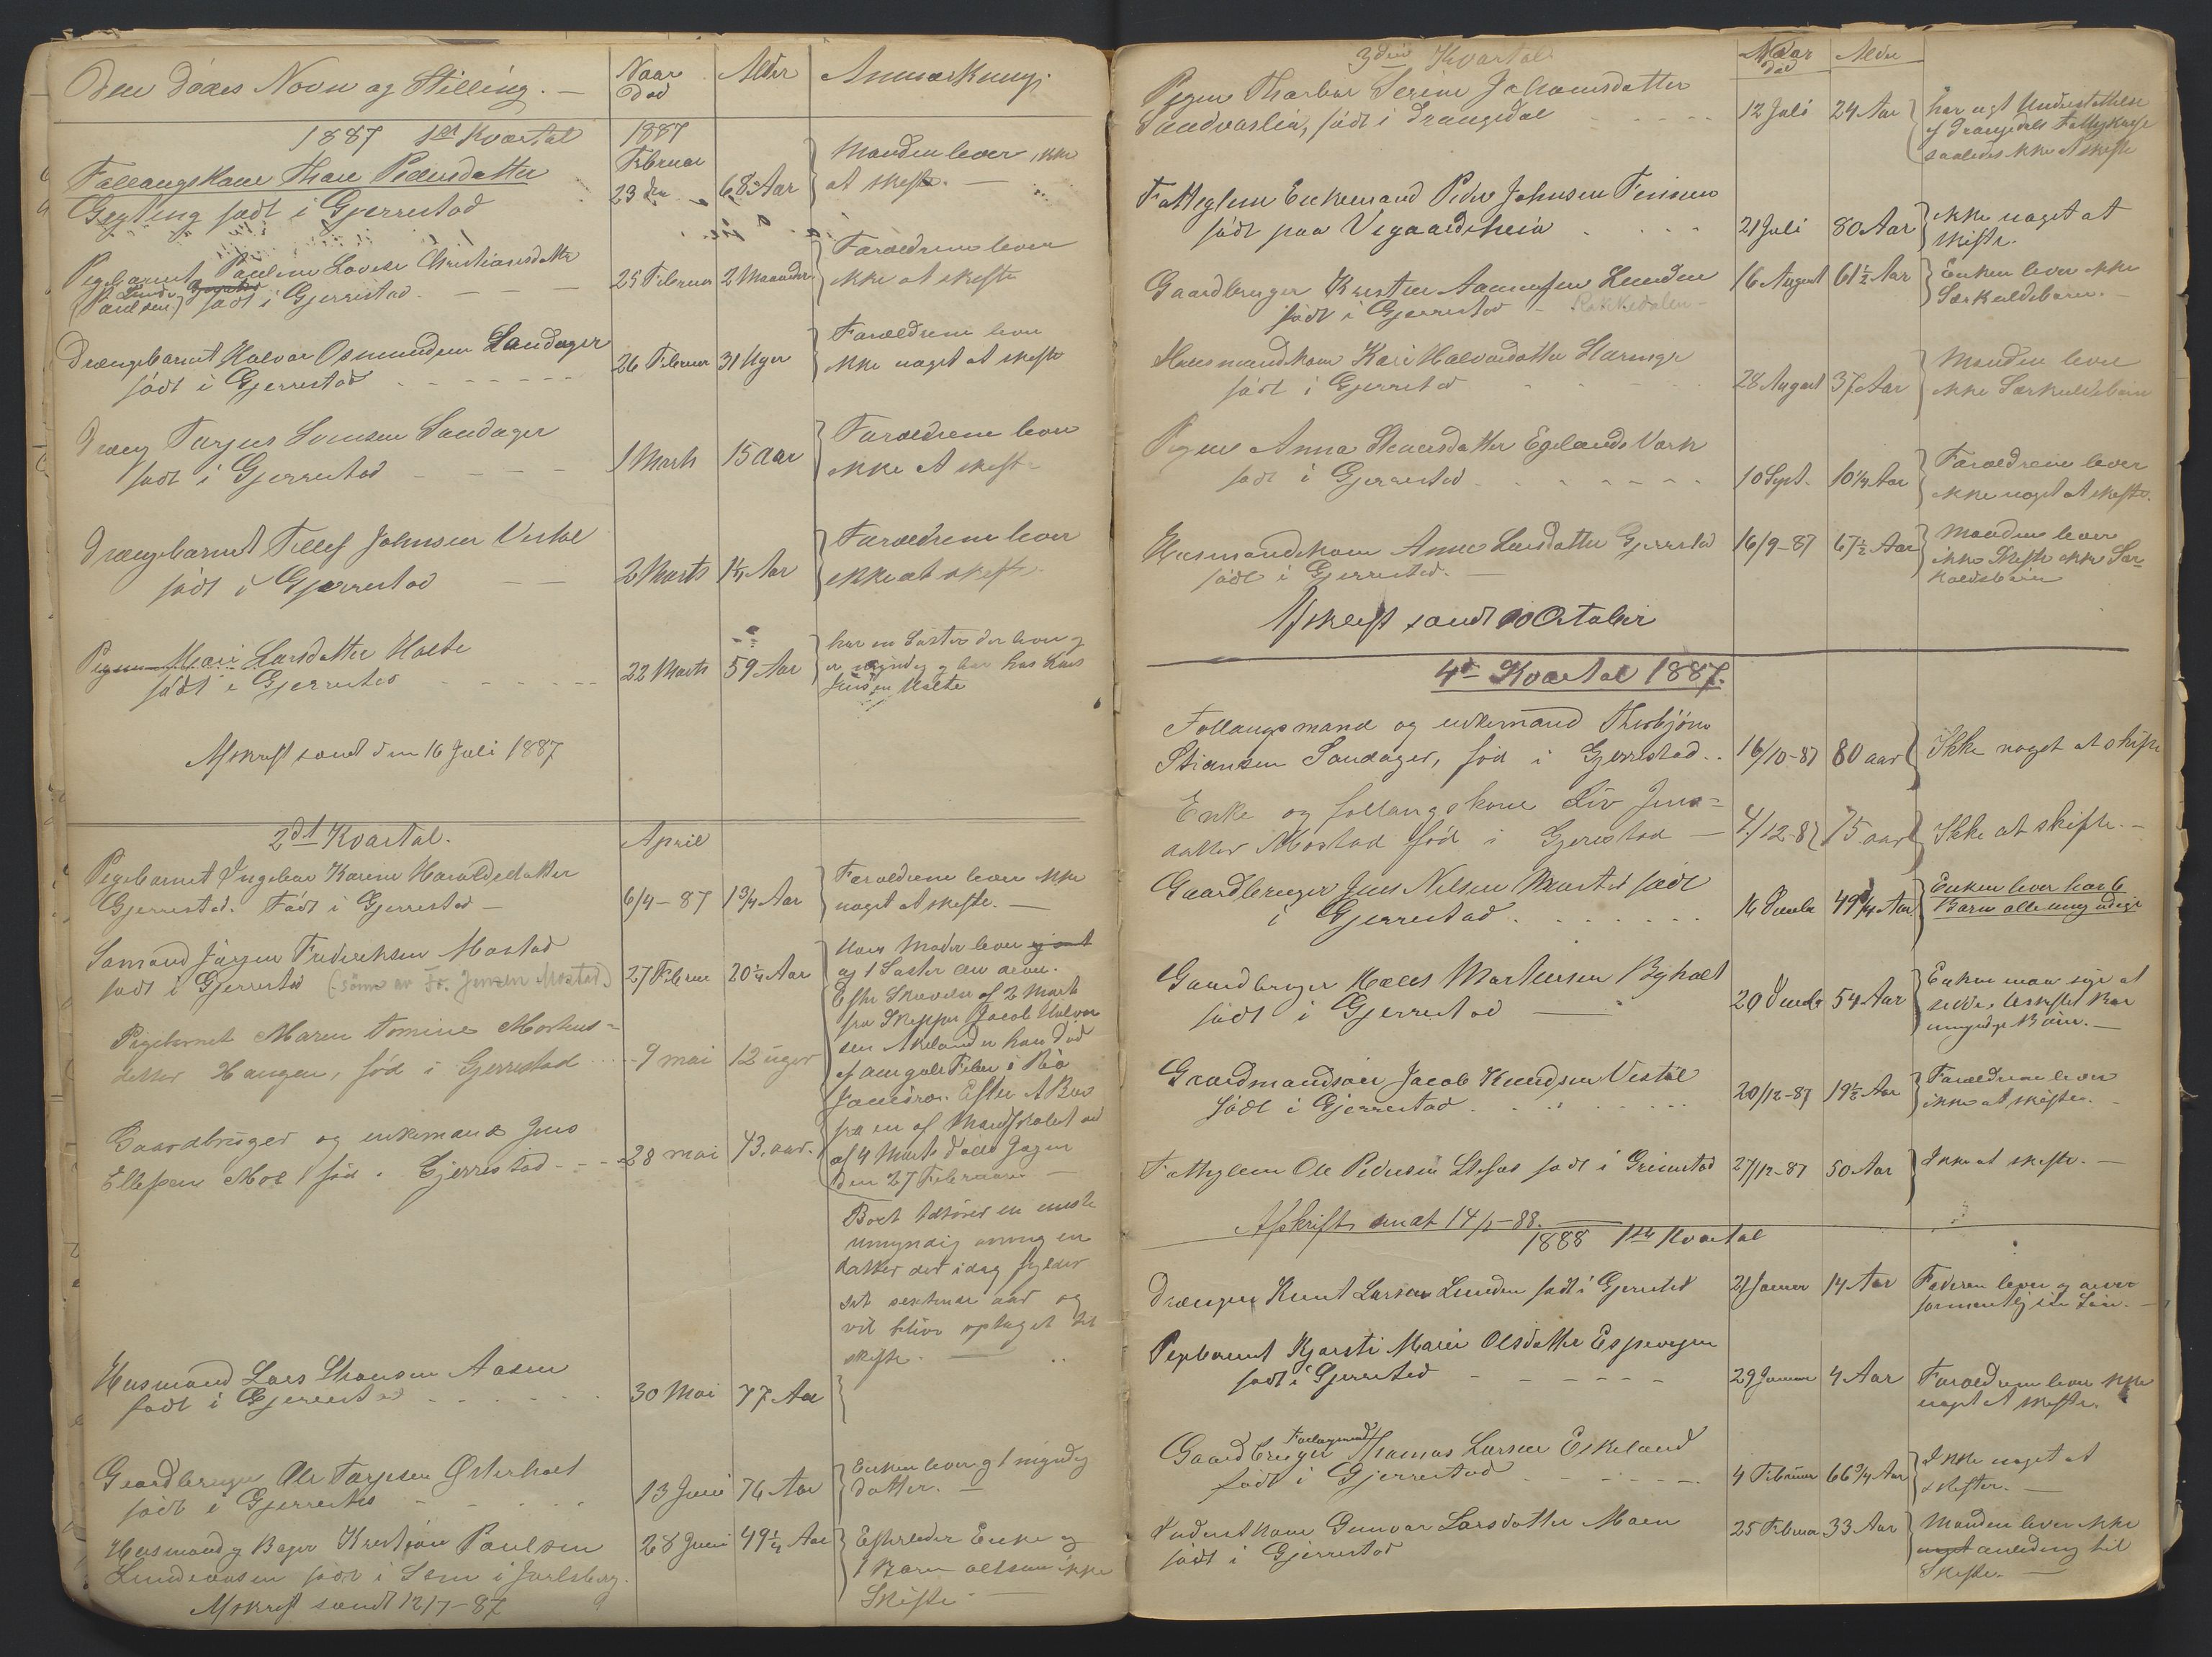 Den dødes Navn og Stilling. —
Naar
Død
Alder
Anmærkning
1887 1st Kvartal
1887
Februar
Follaugskone Thore Pedersdatter
Gryting født i Gjerrestad
23 den
68 Aar
Manden lever ikke
at skifte. —
Pigebarnet Pauline Lovise Christiansdatter
(Paulsen) Lunde født i Gjerrestad
25 Februar
2 Maaneder
Forældrene lever
ikke at skifte
Drængebarnet Halvor Osmundsen Sandager
født i Gjerrestad
26 Februar
31 Uger
Forældrene lever
ikke noget at skifte
Dræng Tarjus Sandager
født i Gjerrestad
1 Marts
15 Aar
Forældrene lever
ikke at skifte
Drængebarnet Tellef Johnsen Vestøl
født i Gjerrestad
2 Marts
1¼ Aar
Forældrene lever
ikke at skifte
Pigen Mari Larsdatter Holte
født i Gjerrestad
22 Marts
59 Aar
har en Søster der lever og
er myndig og bor hos Lars
Holte
Afskrift sendt den 16 Juli 1887
2det Kvartal.
April
Pigebarnet Ingebor Karine Haraldsdatter
Gjerrestad. Født i Gjerrestad —
6/4 – 87
1¾ Aar
Forældrene lever ikke
noget at skifte. —
Sømand Jørgen Frederiksen Mostad
født i Gjerrestad (sønn av Fr. Jensen Mostad)
27 Februar
20¼ Aar
Hans Moder lever
og 1 Søster
Efter Skrivelse af 2 Marts
fra Skipper Jacob Halvor-
sen Akeland er han død
af den gule Feber i Rio
Janeiro. Efter
fra en af Mandskabet
af 4 Marts døde Jørgen
den 27 Februar —
Pigebarnet Maren Tomine Mortens-
datter Haugen, fød i Gjerrestad
9 mai
12 uger
Gaardbruger og enkemand Jens
Ellefsen Moe fød i Gjerrestad
28 mai
73. aar.
Boet tilhører en eneste
umyndig arving en
datter der idag fylder
sit sextende aar og
vil blive optaget til
skifte. —
Husmand Lars Aasen
født i Gjerrestad
30 Mai
77 Aar
Gaardbruger Ole Tarjesen Østerholt
født i Gjerrestad
13 Juni
76 Aar
Enken lever og 1 myndig
datter. —
Husmand og Bager Kristian Paulsen
Lundeaasen født i Sem i Jarlsberg.
28 Juni
49¼ Aar
Efterleder Enke og
1 Barn altsaa ikke
Skifte —
Afskrift sendt 12/7 – 87
3die Kvartal
Naar
død
Alder
Pigen Thorbor Serine Johannsdatter
Sandvaslia, født i Drangedal
12 Juli
24 Aar
har nyt Understøttelse
af Drangedals Fattigkasse
saaledes ikke at skifte
Fattiglem Enkemand Peder Johnsen
født paa Vegaardsheia
21 Juli
80 Aar
ikke noget at
skifte.
Gaardbruger Kristen Aanonsen Lunden
født i Gjerrestad - Rokkedalen -
16 August
61½ Aar
Enken lever ikke
Særkuldsbarn. —
Husmandskone Kari Halvorsdatter
født i Gjerrestad
28 August
37 Aar
Manden lever
ikke Særkuldsbørn
Pigen Anna Egelands Værk
født i Gjerrestad
10 Sept.
10¼ Aar
Forældrene lever
ikke noget at skifte.
Husmandskone Anne Larsdatter Gjerrestad
født i Gjerrestad. —
16/9-87
67½ Aar
Manden lever
ikke Skifte ikke Sær-
kuldsbørn
Afskrift sendt 10 Octobr
4de Kvartal 1887.
Follaugsmand og enkemand Thorbjørn
Stiansen Sandager, fød i Gjerrestad
16/10-87
80 aar
Ikke noget at skifte
Enke og follaugskone Liv Jens-
datter Mostad fød i Gjerestad —
4/12-87
75 aar
Ikke at skifte. —
Gaardbruger Jens Nilsen Mostad født
i Gjerrestad
14 Decembr
49¼ Aar
Enken lever har 6
Børn alle umyndige
Gaardbruger Halvor Mortensen Byholt
født i Gjerrestad —
20 Decembr
54 Aar
Enken maa søge at
sidde i Uskiftet Bo
umyndige Børn. —
Gaardmandssøn Jacob Knudsen Vestøl
født i Gjerrestad
20/12-87
19½ Aar
Forældrene lever
ikke at skifte. —
Fattiglem Ole Pedersen født i Grimstad
27/12-87
50 Aar
Ikke at skifte. —
Afskrift sendt 14/1-88.
1888 1ste Kvartal
Drængen Knut Larsen Lunden født i Gjerrestad
21 Januar
14 Aar
Faderen lever og arver
formentlig sin Søn. —
Pigebarnet Kjersti Marie Olsdatter Espevegen
født i Gjerrestad
29 Januar
4 Aar
Forældrene lever ikke
noget at skifte.
Gaardbruger Follaugsmand Thomas Larsen Eskeland
født i Gjerrestad
4 Februar
66¾ Aar
Ikke noget at
skifter. —
Gunvor Larsdatter Moen
født i Gjerrestad
25 Februar
33 Aar
Manden lever ikke
noget anledning til
Skifte. —